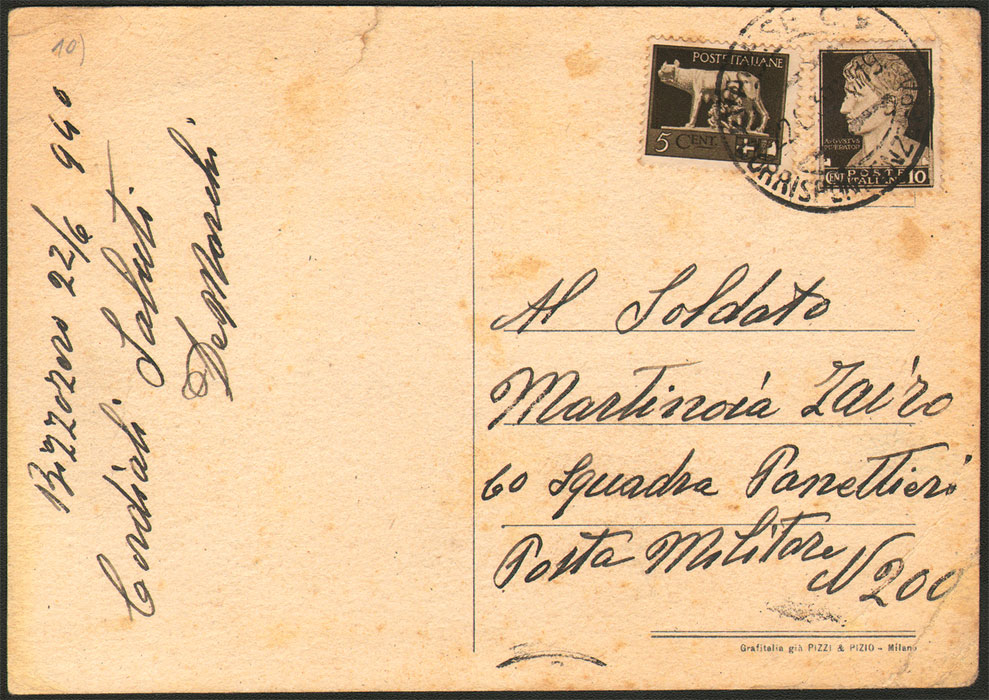 10)
Bizzozero 22/6 940
Cordiali Saluti
De Marchi
POSTE ITALIANE
5 CENT.
AUGVSTVS
IMPERATOR
POSTE
CENT ITALIANE 10
Al Soldato
Martinoia Zairo
60 Squadra Panettieri
Posta Militare
N 200
Grafitalia già PIZZI & PIZIO - Milano